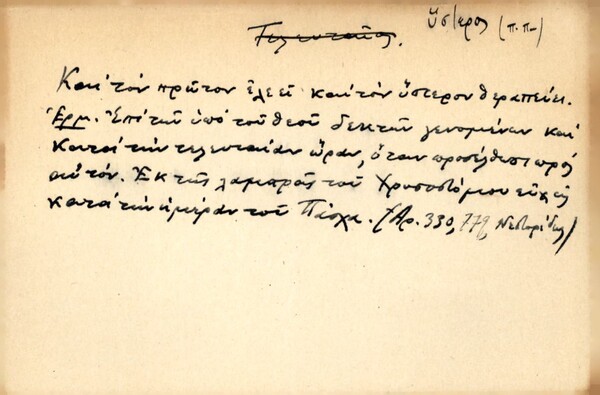 Τελευταῖος. ὕστερος (π.π.)
Καὶ τὸν πρῶτον ἐλεεῖ καὶ τὸν ὕστερον θεραπεύει.
Ἑρμ. Ἐπὶ τῶν ὑπὸ τοῦ Θεοῦ δεκτῶν γενομένων καὶ
κατὰ τὴν τελευταίαν ὥραν, ὅταν προσέλθωσι πρὸς
αὐτόν. Ἐκ τῆς λαμπρᾶς τοῦ Χρυσοστόμου εὐχῆς
κατὰ τὴν ἡμέραν τοῦ Πάσχα. (Αρ. 330, 779, Νεστορίδης)